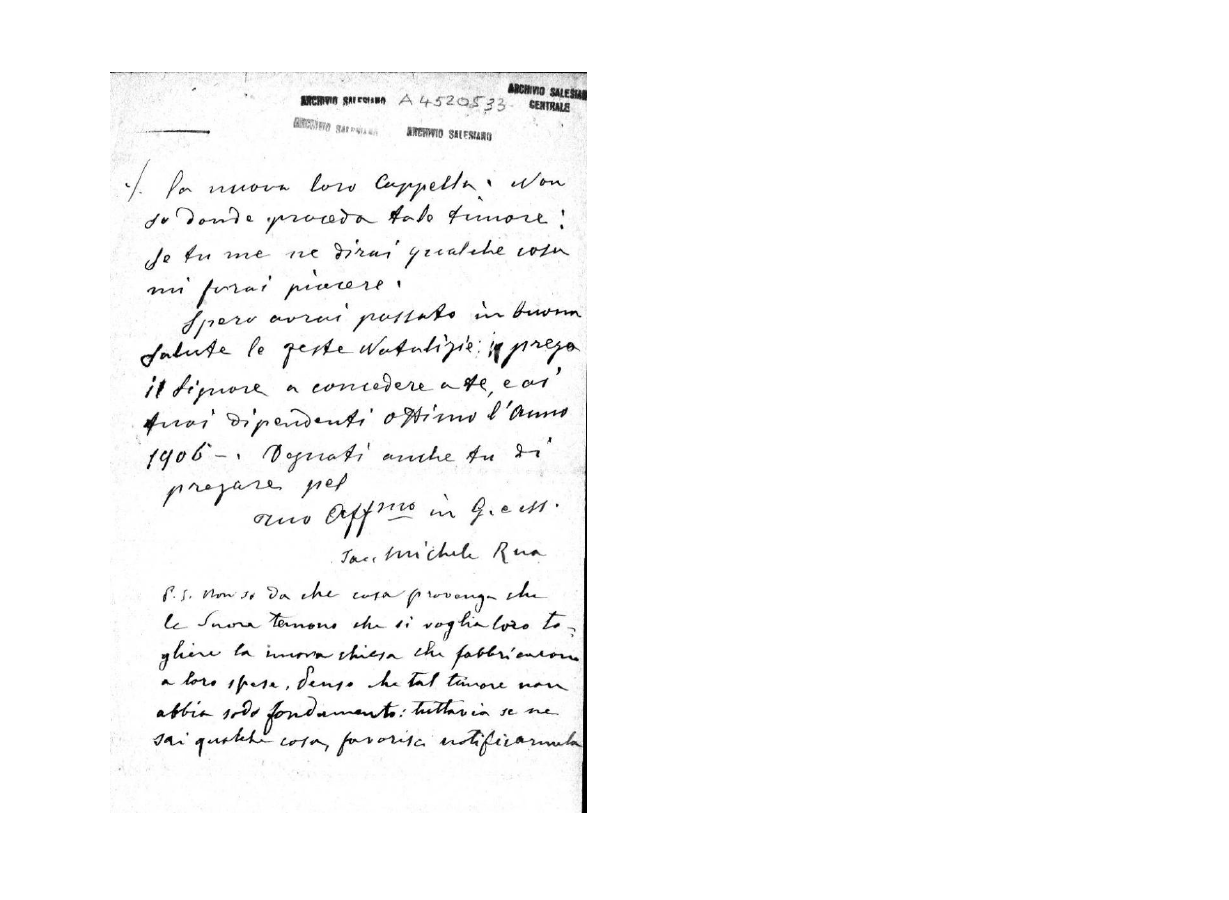 ARCHIVIO SALESIANO A4520533. ARCHIVIO SALESIAN
CENTRALE
ARCHIVIO SALESIANO ARCHIVIO SALESIANO
./. la nuova loro Cappella. Non
so donde proceda tale timore:
se tu me ne dirai qualche cosa
mi farai piacere.
Spero avrai passato in buona
salute le feste Natalizie: prego
il Signore a concedere a te, e ai
tuoi dipendenti ottimo l'Anno
1906 -. Degnati anche tu di
pregare pel
tuo Aff.mo in G. e M.
Sac. Michele Rua
P.S. Non so da che cosa provenga che
le Suore temono che si voglia loro to-
gliere la nuova chiesa che fabbricarono
a loro spese. Penso che tal timore non
abbia sodo fondamento: tuttavia se ne
sai qualche cosa, favorisci notificarmela